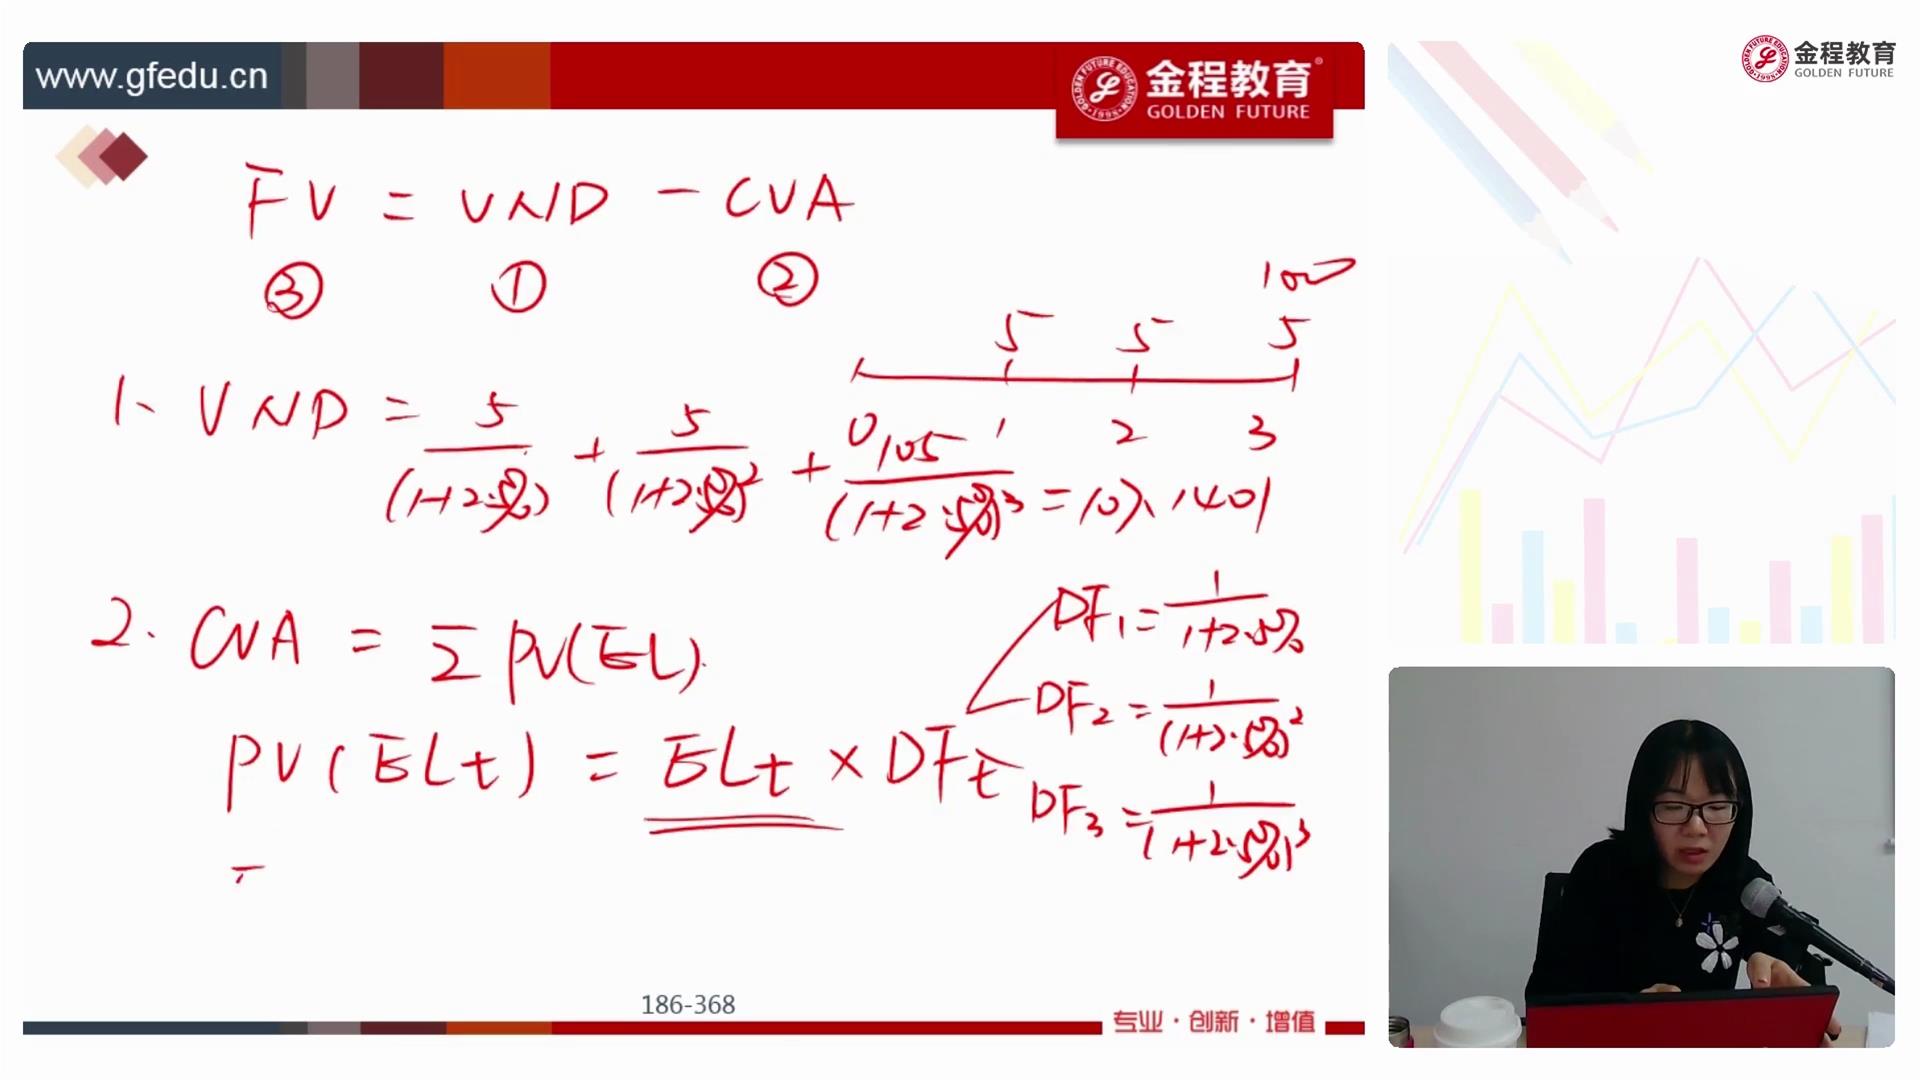 www.gfedu.cn
金程教育®
GOLDEN FUTURE
金程教育
GOLDEN FUTURE
FV = VND - CVA
③ ① ②
100
5 5 5
0 1 2 3
1、VND = 5/(1+2.5%) + 5/(1+2.5%)² + 105/(1+2.5%)³ = 107.1401
2. CVA = Σ PV(EL).
PV(ELt) = ELt × DFt
DF1 = 1/1+2.5%
DF2 = 1/(1+2.5%)²
DF3 = 1/(1+2.5%)³
186-368
专业·创新·增值